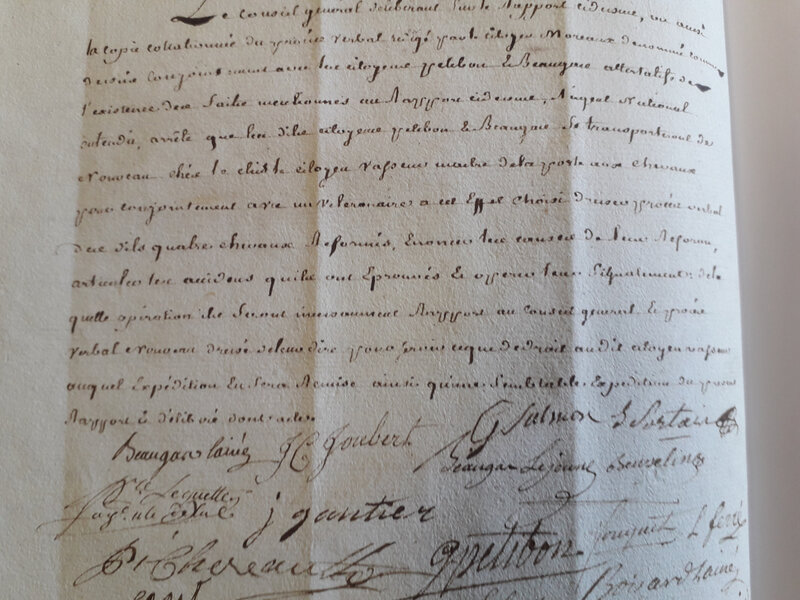 Le Conseil general deliberant sur le Rapport cidessus, vu aussi
la copie collationnée du procès verbal redigé par le citoyen Moreaux denommé comme
dessus conjointement avec les citoyens petibon & Beaugas attestatifs de
l'existence des faits mentionnés au Rapport cidessus, l'agent National
entendu, arrête que les dits citoyens petibon & Beaugas se transportiont de
nouveau chés le dit citoyen vasseur maitre de la poste aux chevaux
pour conjointement avec un veterinaire a cet Effet choisi dresser procés verbal
des dits quatre chevaux Reformés, Enoncer les causes de leur Reforme,
articuler les accidens quils ont Eprouvés Et apperte leur Signalement de la
quelle opération ils feront incessamment Rapport au Conseil general Et procés
verbal nouveau dressé delendire pour servir ceque de droit au dit citoyen vasseur
auquel Expédition En sera Remise ainsi qu'une semblable Expedition du present
Rapport & délibéré dont acte.
Beaugas lainé JC Joubert G Salmon Sortais
Beaugas Lejeune Beuvelin
Lequette
j gautier
P Chereau G petibon fouquet L ferré
Boisard lainé